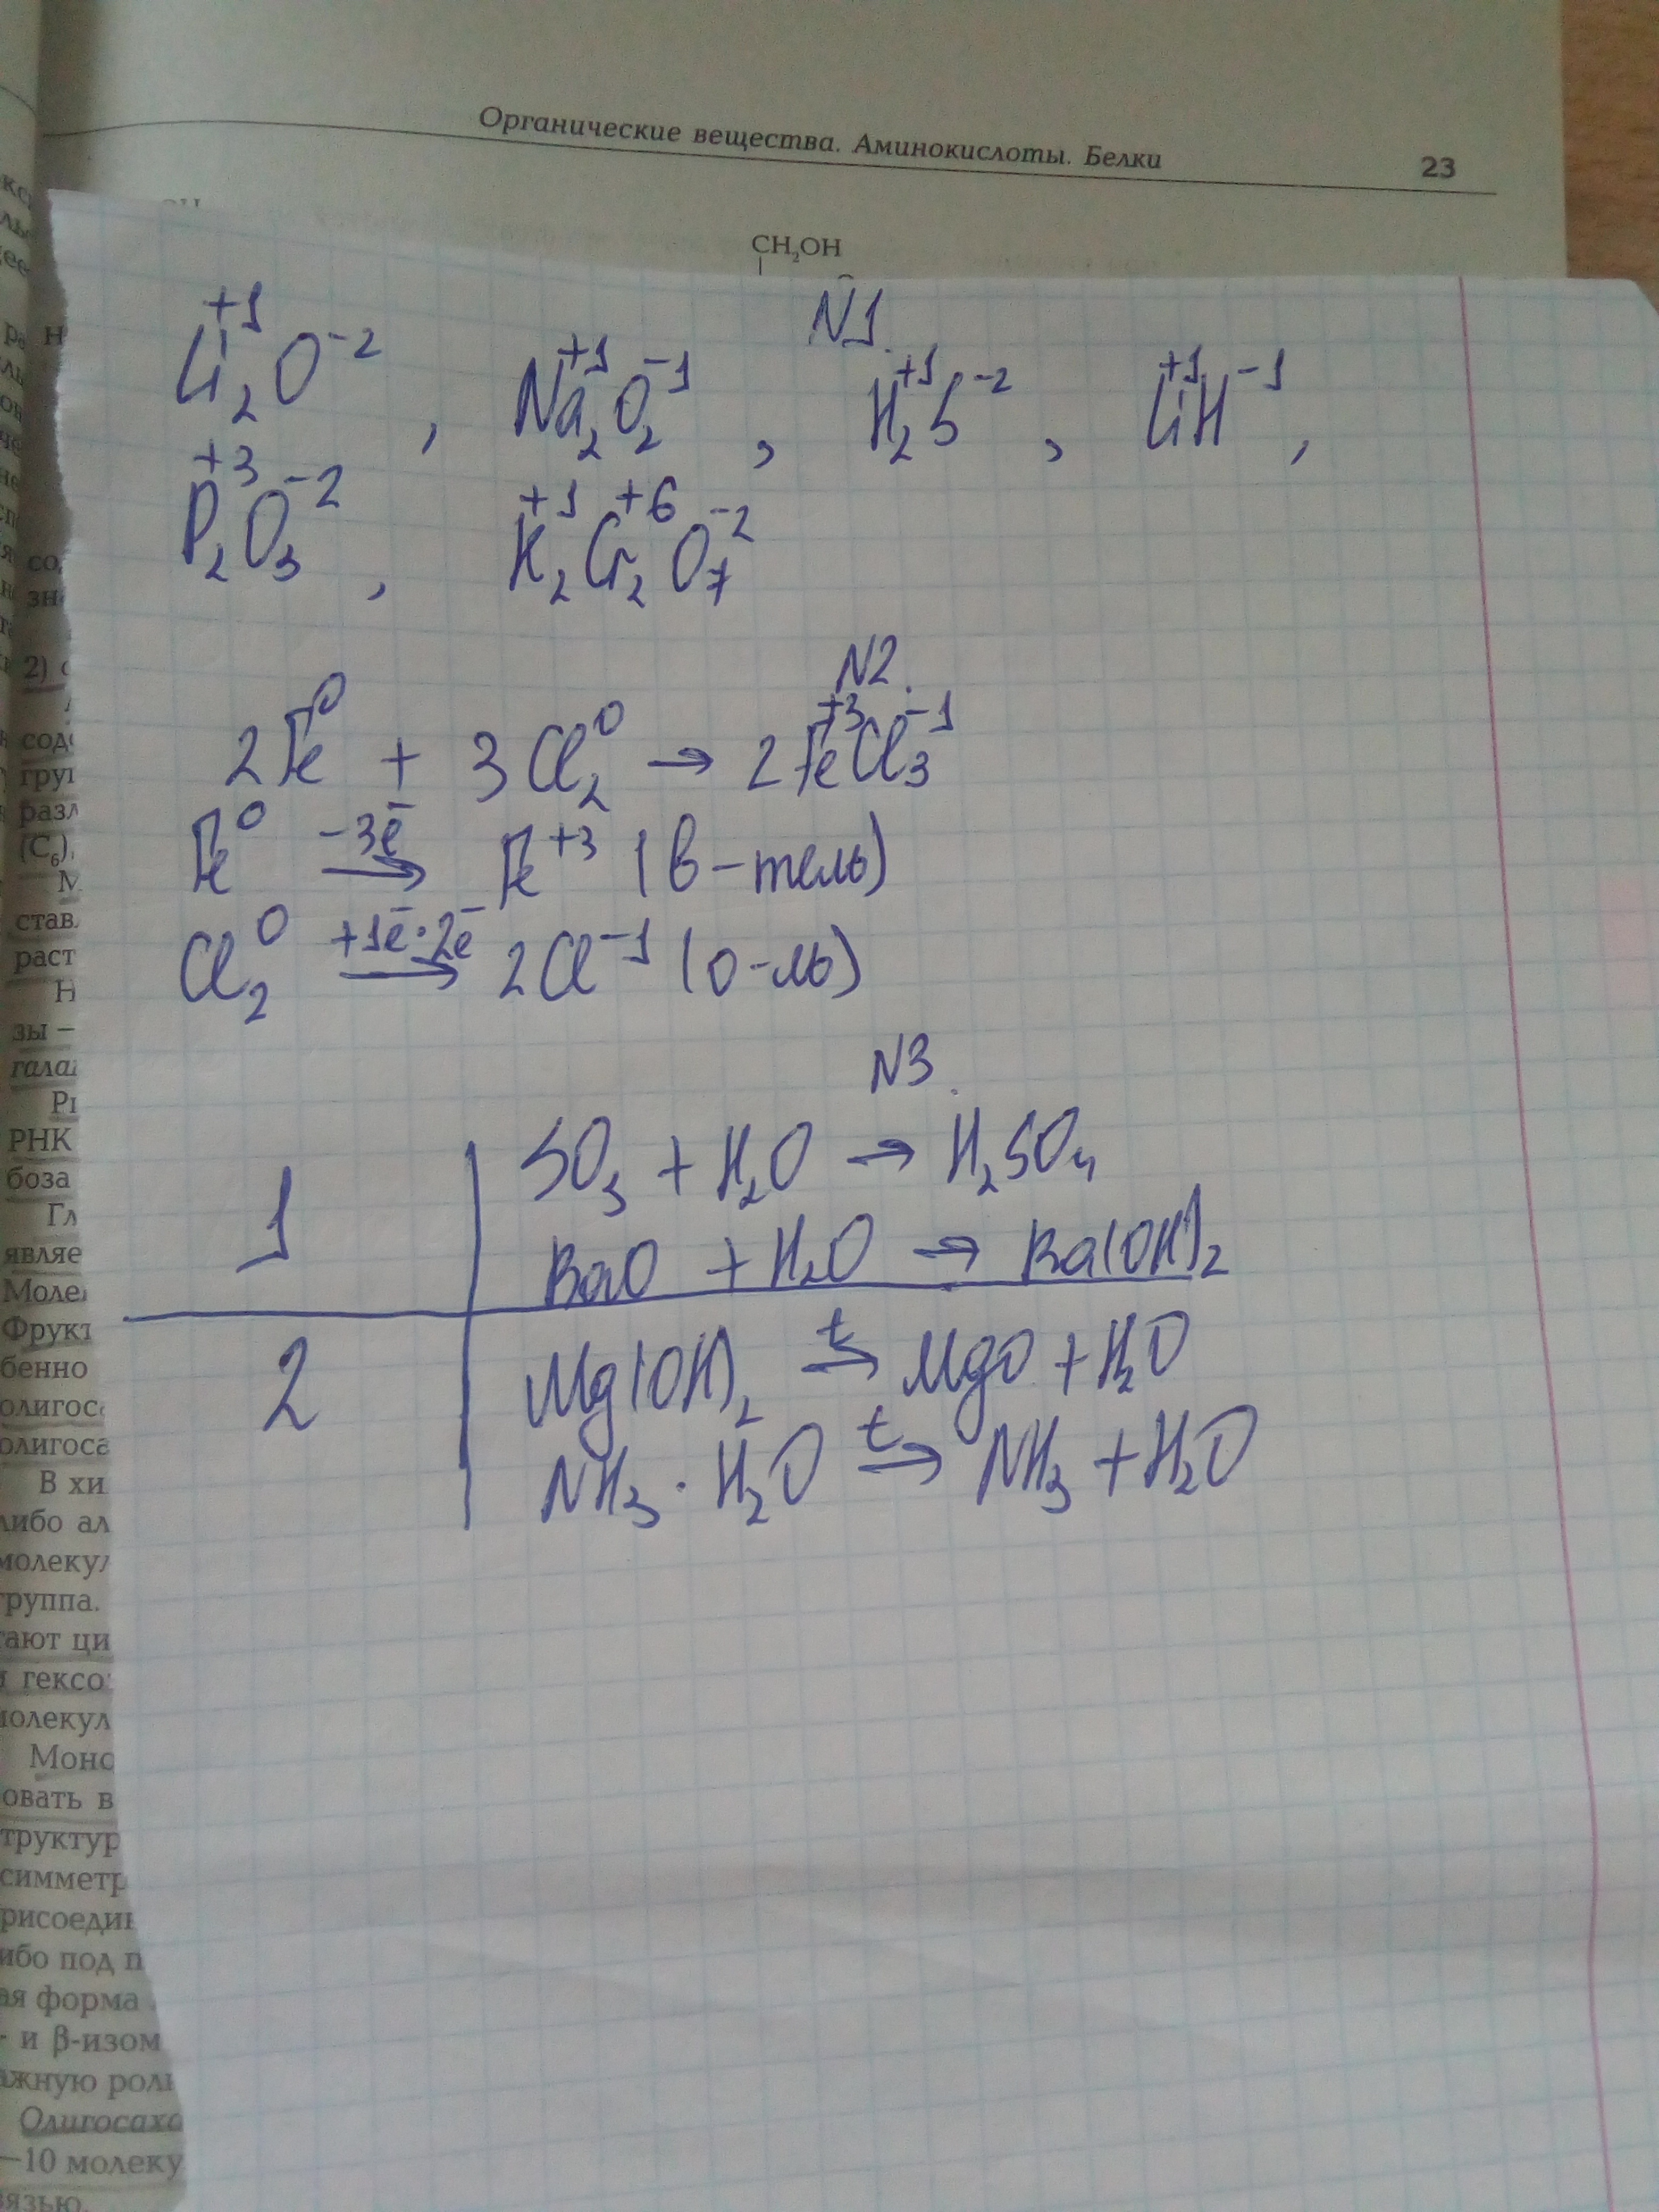 Органические вещества. Аминокислоты. Белки 23
CH₂OH
N1.
Li₂⁺¹O⁻², Na₂⁺¹O₂⁻¹, H₂⁺¹S⁻², Li⁺¹H⁻¹,
P₂⁺³O₃⁻², K₂⁺¹Cr₂⁺⁶O₇⁻²
N2.
2Fe⁰ + 3Cl₂⁰ → 2Fe⁺³Cl₃⁻¹
Fe⁰ -3ē → Fe⁺³ (в-тель)
Cl₂⁰ +1ē·2ē → 2Cl⁻¹ (о-ль)
N3.
1 SO₃ + H₂O → H₂SO₄
BaO + H₂O → Ba(OH)₂
2 Mg(OH)₂ t→ MgO + H₂O
NH₃ · H₂O t→ NH₃ + H₂O
2)
(C₆)
став
раст
зы –
РНК
боза
Гл
являе
Моле
Фрукт
бенно
олигос
олигоса
В хи
либо ал
молеку
группа.
гают ци
гексо
молекул
Моно
овать в
труктур
симметр
рисоеди
ибо под п
ая форма
и β-изом
ажную рол
Олигосаха
–10 молеку
язью.